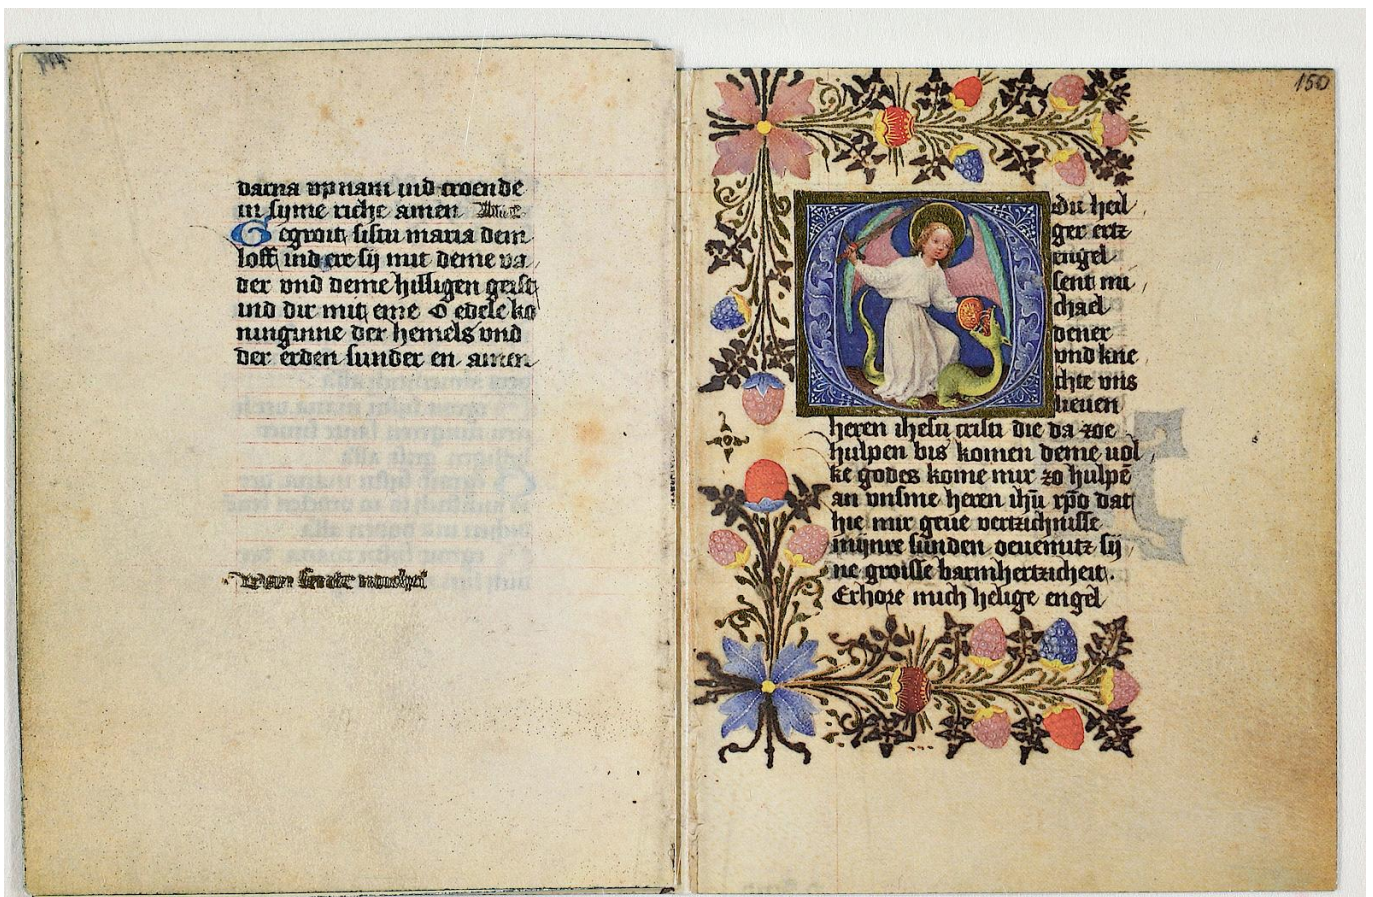 darna vp nam ind croen de
in syme riche amen
Gegroit sistu maria dein
loff ind ere sy mit deme va
der vnd deme hilligen geist
ind dir mit eme O edele ko
ninginne der hemels vnd
der erden sunder en amen
van sente michel
150
Du heil
ger ertz
engel
sent mi
chael
dener
vnd kne
chte vns
lieuen
heren ihesu cristi die da zoe
hulpen bis komen deme vol
ke godes kome mir zo hulpē
an vnsme heren ihū xpō dat
hie mir geue vertzichnisse
mijnre sunden ouermitz sy
ne groisse barmhertzicheit.
Erhore mich heilige engel